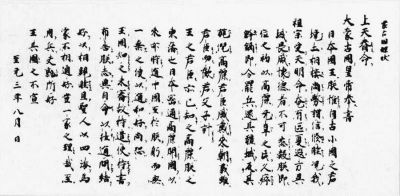 蒙古國牒狀
上天眷命
大蒙古國皇帝奉書
日本國王朕惟自古小國之君
境土相接尚務講信修睦況我
祖宗受天明命奄有區夏遐方異
域畏威懷德者不可悉數朕即
位之初以高麗无辜之民久瘁
鋒鏑即令罷兵還其疆域反其
旄倪高麗君臣感戴來朝義雖
君臣而歡若父子計
王之君臣亦已知之高麗朕之
東藩也日本密邇高麗開國以
來亦時通中國至於朕躬而無
一乘之使以通和好尚恐
王國知之未審故特遣使持書
布告朕志冀自今以往通問結
好以相親睦且聖人以四海為
家不相通好豈一家之理哉至
用兵夫孰所好
王其圖之不宣
至元三年八月 日